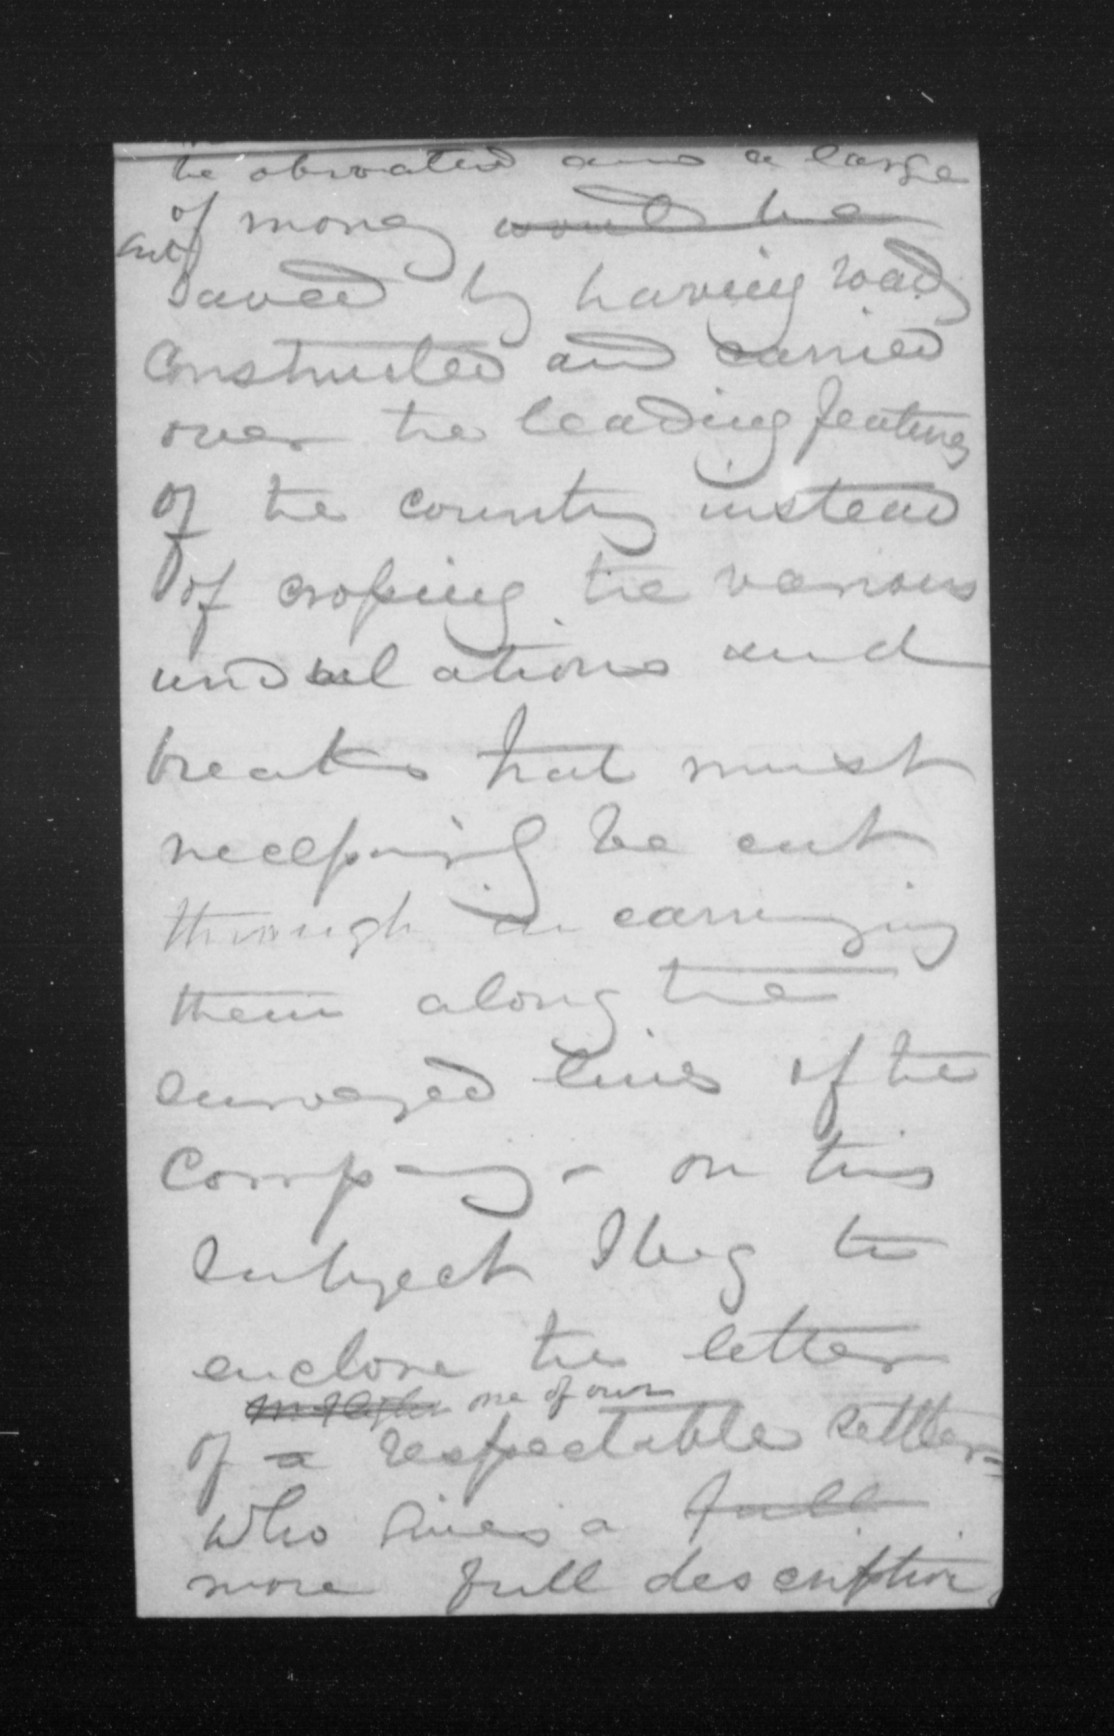 be obviated and a large
of money would be
and
saved by having roads
constructed and carried
over the leading features
of the country instead
of crossing the various
undulations and
breaks that must
necessarily be cut
through in carrying
them along the
surveyed lines of the
Company - on this
subject I beg to
enclose the letter
one of our
of a respectable settlers
who gives a full
more full description